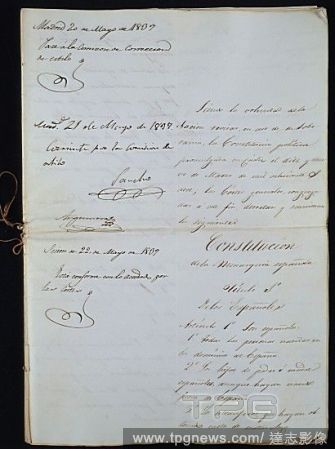 Madrid 20 de Mayo de 1837
Pase á la Comision de Correccion
de estilo
Mad.d 21 de Mayo de 1837
Corriente por la Comision de
estilo
Sancho
Argumosa
Sesion de 22 de Mayo de 1837
conforme con lo acordado por
las Cortes
Siendo la voluntad de la
Nacion
la Constitucion politica
promulgada en Cadiz el diez y nue
ve de Marzo de mil ochocientos
doce, las Cortes generales congrega
das á este fin decretan y sancionan
la siguiente
Constitucion
de la Monarquia española
Titulo 1º
De los Españoles
Articulo 1º Son españoles:
1º Todas las personas nacidas en
los dominios de España
2º Los hijos de padre ó madre
españoles, aunque hayan nacido
fuera de España
TPG
www.tpgnews.com/達志影像